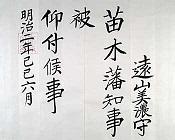 遠山美濃守
苗木藩知事
被
仰付候事
明治二年己巳六月